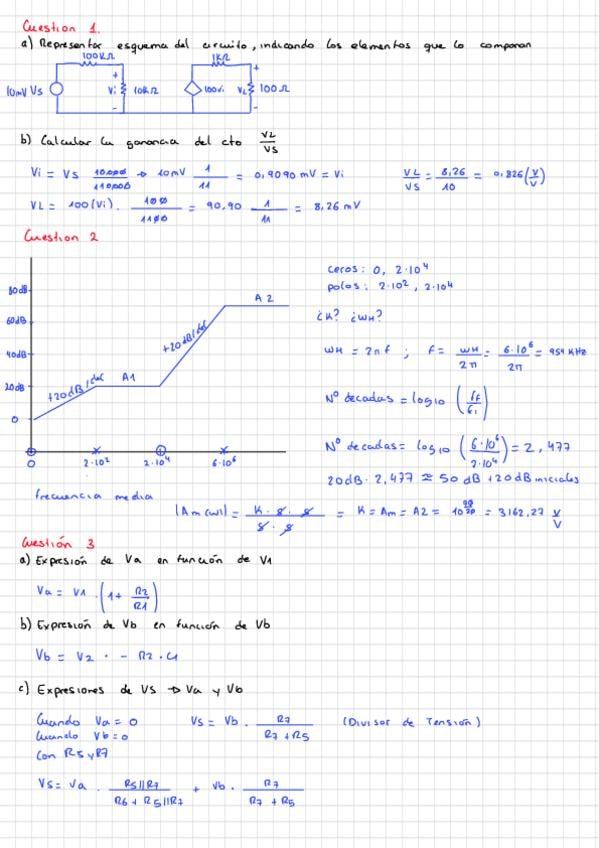 Cuestion 1.
a) Representar esquema del circuito, indicando los elementos que lo componan
100KΩ 1KΩ
10mV Vs + Vi - 10KΩ 100Vi + VL - 100Ω
b) Calcular la ganancia del cto VL/VS
Vi = VS 10.000/110.000 → 10mV 1/11 = 0,9090 mV = Vi VL/VS = 8,26/10 = 0,826 (V/V)
VL = 100(Vi) · 100/1100 = 90,90 1/11 = 8,26 mV
Cuestion 2
ceros: 0, 2·10⁴
polos: 2·10², 2·10⁴
¿K? ¿WH?
80dB
60dB
40dB
20dB
0
+20dB/dec A1 +20dB/dec A2
0 2·10² 2·10⁴ 6·10⁶
WH = 2πf ; f = WH/2π = 6·10⁶/2π = 954 KHz
Nº decadas = log10 (ff/fi)
Nº decadas = log10 (6·10⁶/2·10⁴) = 2,477
20dB · 2,477 ≈ 50 dB +20dB iniciales
frecuencia media
|Am(w)| = K·s·s/s·s = K = Am = A2 = 10 = 3162,27 V/V
Cuestión 3
a) Expresión de Va en función de V1
Va = V1 · (1 + R2/R1)
b) Expresión de Vb en función de Vb
Vb = V2 · - R2 · C1
c) Expresiones de VS → Va y Vb
Cuando Va = 0 VS = Vb · R7/R7 + R5 (Divisor de Tensión)
Cuando Vb = 0
Con R5 y R7
VS = Va · R5||R7/R6 + R5||R7 + Vb · R7/R7 + R5